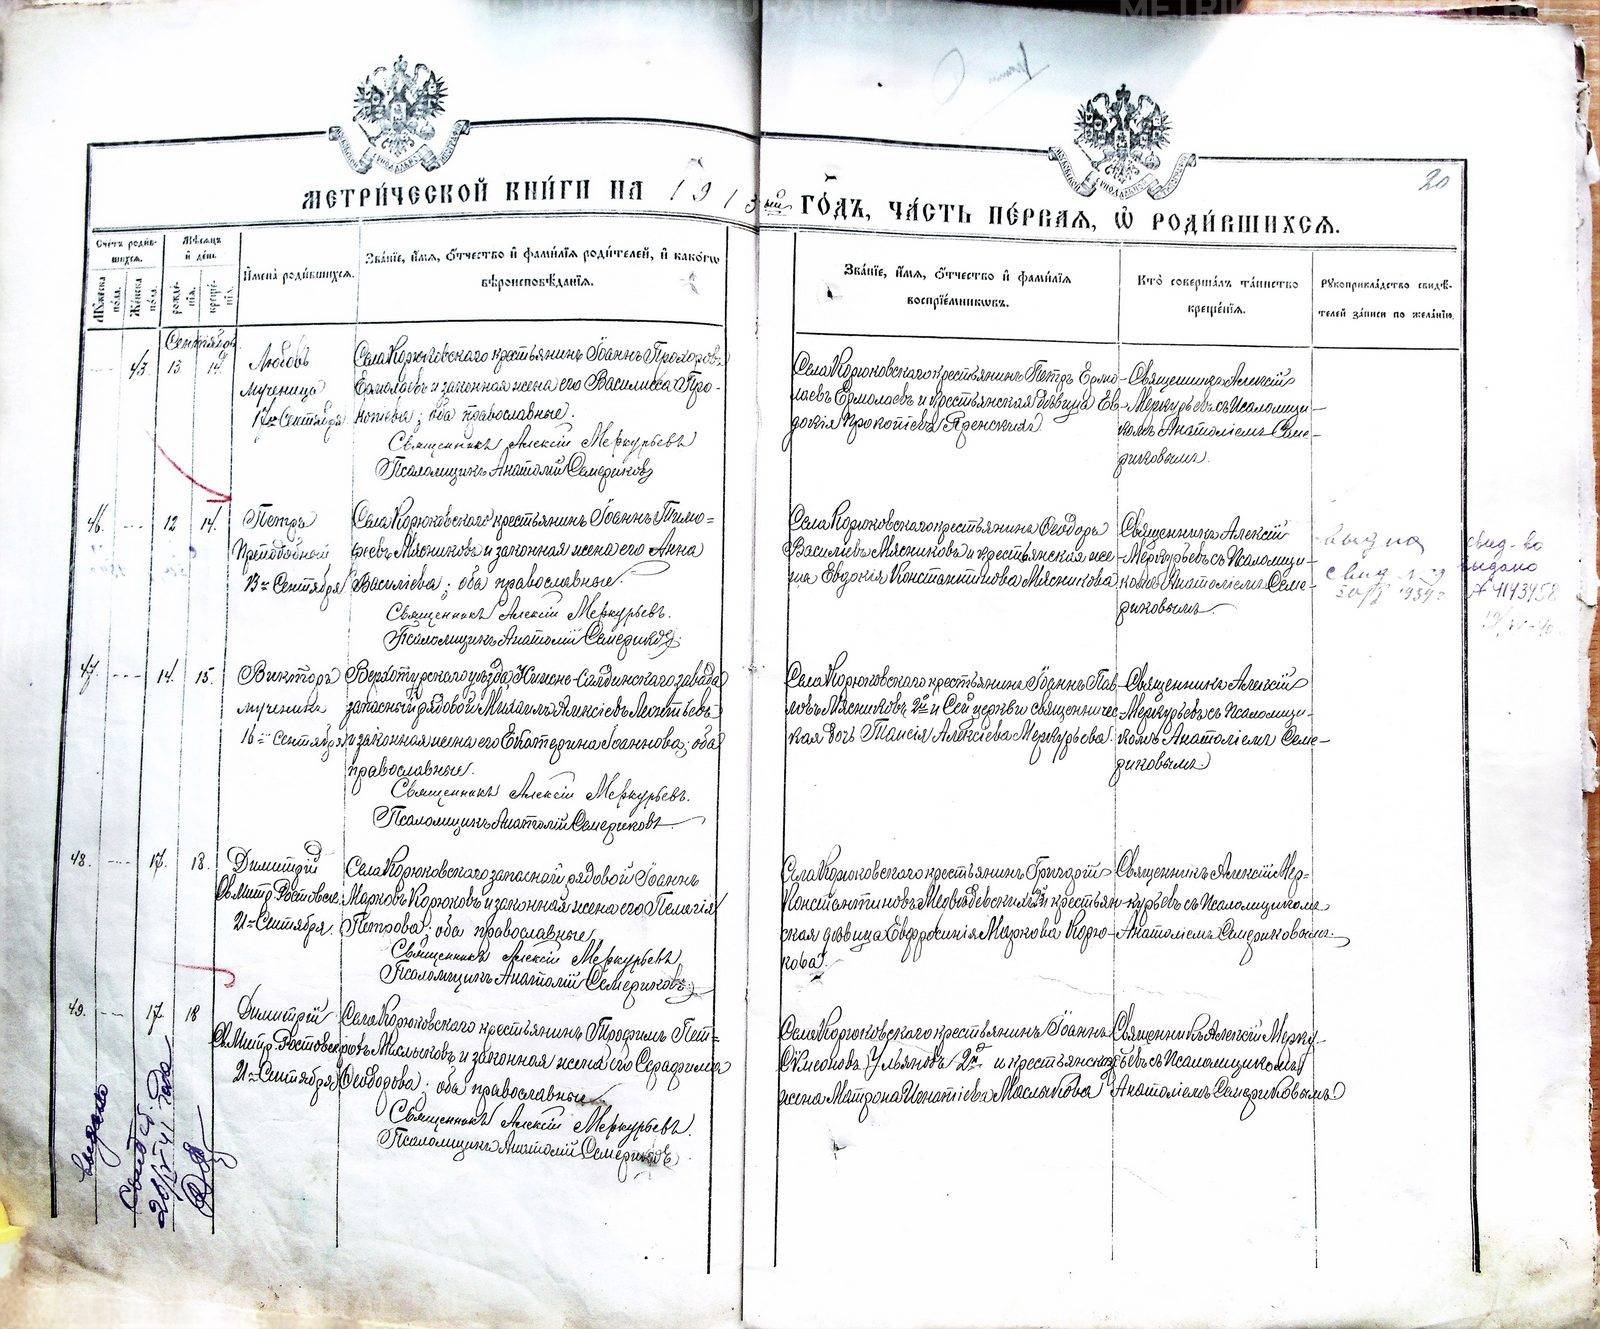 МЕТРИ́ЧЕСКОЙ КНИ́ГИ НА 1913ый ГО́ДЪ, ЧА́СТЬ ПЕ́РВАЯ, Ѡ РОДИ́ВШИХСЯ.
20
Сче́тъ роди́в-
шихся.
Мѣсяцъ
и день.
Имена роди́вшихся.
Зва́ніе, и́мя, о́тчество и фами́лія роди́телей, и како́гѡ
вѣроисповѣ́данія.
Зва́ніе, и́мя, о́тчество и фами́лія
воспріе́мниковъ.
Кто̀ соверша́лъ та́инство
креще́нія.
Рукоприкла́дство свидѣ́-
телей за́писи по жела́нію.
Му́жеска по́ла.
Же́нска по́ла.
рожде́-
нія.
креще́-
нія.
Сентябрь
43. 13 14
Любовь
мученицы
17го Сентября
Села Корюковского крестьянинъ Іоаннъ Прохоров.
Ермолаевъ и законная жена его Василисса Про-
копьева; оба православные.
Священникъ Алексій Меркурьевъ
Псаломщикъ Анатолій Семериковъ
Села Корюковского крестьянинъ Петръ Ермо-
лаевъ Ермолаевъ и крестьянская дѣвица Ев-
докія Прокопіева
Священникъ Алексій
Меркурьевъ съ Псаломщи-
комъ Анатоліемъ Семе-
риковымъ.
46. 12 14.
Петръ
Преподобный
13го Сентября
Села Корюковского крестьянинъ Іоаннъ Тимо-
феевъ Мясниковъ и законная жена его Анна
Василіева; оба православные.
Священникъ Алексій Меркурьевъ.
Псаломщикъ Анатолій Семериковъ.
Села Корюковского крестьянинъ Ѳеодоръ
Василіевъ Мясниковъ и крестьянская же-
на Евдокія Константинова Мясникова
Священникъ Алексій
Меркурьевъ съ Псаломщи-
комъ Анатоліемъ Семе-
риковымъ.
выдано
1939 г
свид-во
выдано
47. 14. 15.
Викторъ
мученика
16го Сентября
Верхотурского уѣзда, Нижне-Салдинского завода
запасный рядовой Михаилъ Алексіевъ Леонтьевъ
и законная жена его Екатерина Іоаннова; оба
православные.
Священникъ Алексій Меркурьевъ.
Псаломщикъ Анатолій Семериковъ
Села Корюковского крестьянинъ Іоаннъ Пав-
ловъ Мясниковъ 2й и Сей церкви священничес-
кая дочь Таисія Алексіева Меркурьева
Священникъ Алексій
Меркурьевъ съ Псаломщи-
комъ Анатоліемъ Семе-
риковымъ
48. 17. 18.
Димитрій
Св. Митр. Ростовск.
21го Сентября.
Села Корюковского запасной рядовой Іоаннъ
Марковъ Корюковъ и законная жена его Пелагія
Петрова; оба православные
Священникъ Алексій Меркурьевъ
Псаломщикъ Анатолій Семериковъ
Села Корюковского крестьянинъ Григорій
Константиновъ и крестьян-
ская дѣвица Евфросинія Маркова Корю-
кова.
Священникъ Алексій Мер-
курьевъ съ Псаломщикомъ
Анатоліемъ Семериковымъ.
49. 17. 18
Димитрій
Св. Митр. Ростовск.
21го Сентября
Села Корюковского крестьянинъ Трофимъ Пет-
ровъ Маслыковъ и законная жена его Серафима
Ѳеодорова; оба православные
Священникъ Алексій Меркурьевъ.
Псаломщикъ Анатолій Семериковъ
Села Корюковского крестьянинъ Іоаннъ
Симеоновъ Ульяновъ 2й и крестьянская
жена Матрона Игнатіева Маслыкова
Священникъ Алексій Мерку-
рьевъ съ Псаломщикомъ
Анатоліемъ Семериковымъ
выдано